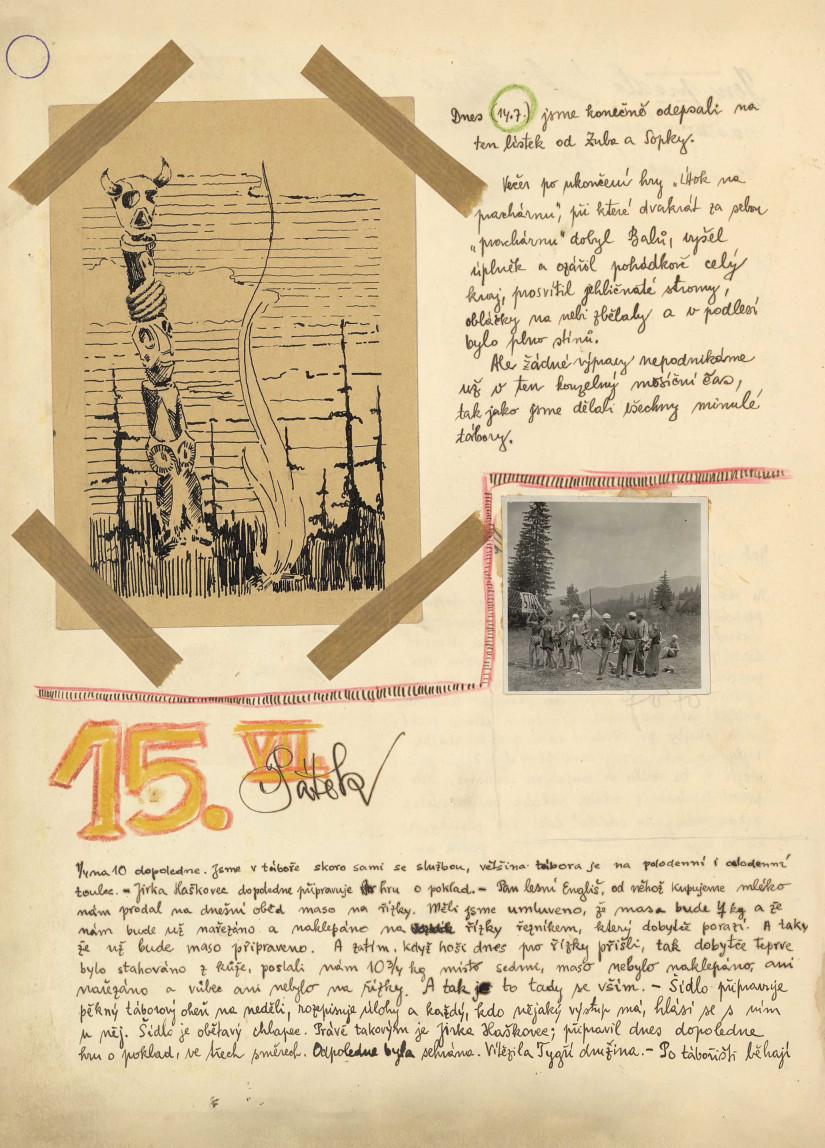 Dnes (14.7.) jsme konečně odepsali na
ten lístek od Zuba a Sopky.
Večer po ukončení hry „Útok na
prachárnu", při které dvakrát za sebou
„prachárnu" dobyl Balů, vyšel
úplněk a ozářil pohádkově celý
kraj, prosvítil jehličnaté stromy,
obláčky na nebi zbělaly a v podlesí
bylo plno stínů.
Ale žádné výpravy nepodnikáme
už v ten kouzelný měsíční čas,
tak jako jsme dělali všechny minulé
tábory.
15. VII. Pátek
10 dopoledne. Jsme v táboře skoro sami se službou, většina tábora je na polodenní i celodenní
toulce. – Jirka Haškovec dopoledne připravuje hru o poklad. – Pan lesní Engliš, od něhož kupujeme mléko
nám prodal na dnešní oběd maso na řízky. Měli jsme umluveno, že masa bude 7 kg a že
nám bude už nařezáno a naklepáno na řízky řezníkem, který dobytče porazí. A taky
že už bude maso připraveno. A zatím, když hoši dnes pro řízky přišli, tak dobytče teprve
bylo stahováno z kůže, poslali nám 10 3/4 kg místo sedmi, maso nebylo naklepáno, ani
nařezáno a vůbec ani nebylo na řízky. A tak je to tady se vším. – Šídlo připravuje
pěkný táborový oheň na neděli, rozepisuje úlohy a každý, kdo nějaký výstup má, hlásí se s ním
u něj. Šídlo je obětavý chlapec. Právě takovým je Jirka Haškovec; připravil dnes dopoledne
hru o poklad, ve třech směrech. Odpoledne byla sehrána. Vítězila Tygří družina. – Po tábořišti běhají